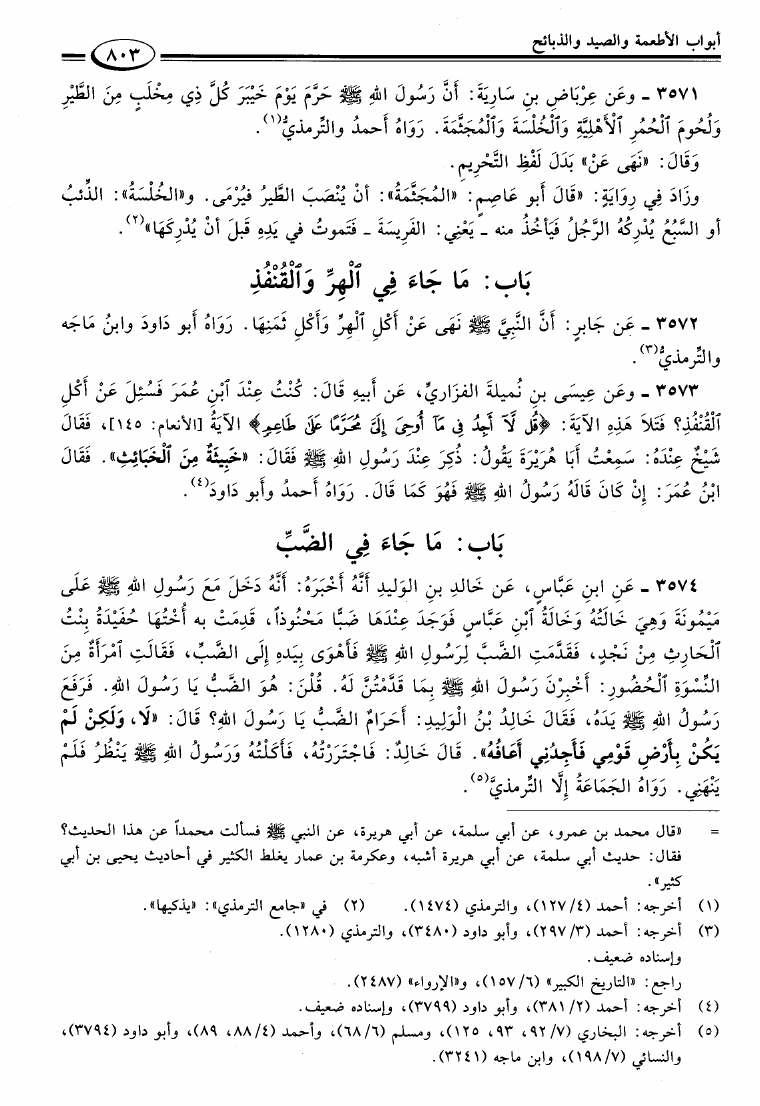 أبواب الأطعمة والصيد والذبائح
٨٠٣
٣٥٧١ ـ وعَن عِرْبَاضِ بنِ سَارِيَةَ: أَنَّ رَسُولَ اللهِ ﷺ حَرَّمَ يَوْمَ خَيْبَرَ كُلَّ ذِي مِخْلَبٍ مِنَ الطَّيْرِ
وَلُحُومَ الْحُمُرِ الْأَهْلِيَّةِ وَالْخُلْسَةَ وَالْمُجَثَّمَةَ. رَوَاهُ أحمدُ والتِّرمذيُّ(١).
وَقَالَ: «نَهَى عَنْ» بَدَلَ لَفْظِ التَّحْرِيمِ.
وزَادَ فِي رِوَايَةٍ: «قَالَ أبو عَاصِمٍ: «المُجَثَّمَةُ»: أنْ يُنْصَبَ الطَّيرُ فيُرْمَى. و«الخُلْسَةُ»: الذِّئبُ
أو السَّبُعُ يُدْرِكُهُ الرَّجُلُ فَيَأخُذُ منه ـ يَعْنِي: الفَرِيسَةَ ـ فَتَموتُ في يَدِهِ قَبلَ أنْ يُدْرِكَهَا»(٢).
بَاب: مَا جَاءَ فِي الْهِرِّ وَالْقُنْفُذِ
٣٥٧٢ ـ عَن جَابِرٍ: أَنَّ النَّبِيَّ ﷺ نَهَى عَنْ أَكْلِ الْهِرِّ وَأَكْلِ ثَمَنِهَا. رَوَاهُ أبو دَاودَ وابنُ مَاجَه
والتِّرمذيُّ(٣).
٣٥٧٣ ـ وعَن عِيسَى بنِ نُميلةَ الفزاريِّ، عَن أبيهِ قَالَ: كُنْتُ عِنْدَ ابْنِ عُمَرَ فَسُئِلَ عَنْ أَكْلِ
الْقُنْفُذِ؟ فَتَلَا هَذِهِ الآيَةَ: ﴿قُل لَّا أَجِدُ فِى مَا أُوحِىَ إِلَىَّ مُحَرَّمًا عَلَى طَاعِمٍ﴾ الآيَةُ [الأنعام: ١٤٥]، فَقَالَ
شَيْخٌ عِنْدَهُ: سَمِعْتُ أبَا هُرَيْرَةَ يَقُولُ: ذُكِرَ عِنْدَ رَسُولِ اللهِ ﷺ فَقَالَ: «خَبِيثَةٌ مِنَ الْخَبَائِثِ». فَقَالَ
ابْنُ عُمَرَ: إنْ كَانَ قَالَهُ رَسُولُ اللهِ ﷺ فَهُوَ كَمَا قَالَ. رَوَاهُ أحمدُ وأبو دَاودَ(٤).
بَاب: مَا جَاءَ فِي الضَّبِّ
٣٥٧٤ ـ عَنِ ابنِ عَبَّاسٍ، عَن خَالدِ بنِ الوَليدِ أنَّهُ أخْبَرَهُ: أَنَّهُ دَخَلَ مَعَ رَسُولِ اللهِ ﷺ عَلَى
مَيْمُونَةَ وَهِيَ خَالَتُهُ وَخَالَةُ ابْنِ عَبَّاسٍ فَوَجَدَ عِنْدَهَا ضَبًّا مَحْنُوذاً، قَدِمَتْ به أُخْتُهَا حُفَيْدَةُ بِنْتُ
الْحَارِثِ مِنْ نَجْدٍ، فَقَدَّمَتِ الضَّبَّ لِرَسُولِ اللهِ ﷺ فَأَهْوَى بِيَدِهِ إِلَى الضَّبِّ، فَقَالَتِ امْرَأَةٌ مِنَ
النِّسْوَةِ الْحُضُورِ: أَخْبِرْنَ رَسُولَ اللهِ ﷺ بِمَا قَدَّمْتُنَّ لَهُ. قُلْنَ: هُوَ الضَّبُّ يَا رَسُولَ اللهِ. فَرَفَعَ
رَسُولُ اللهِ ﷺ يَدَهُ، فَقَالَ خَالِدُ بْنُ الْوَلِيدِ: أَحَرَامٌ الضَّبُّ يَا رَسُولَ اللهِ؟ قَالَ: «لَا، وَلَكِنْ لَمْ
يَكُنْ بِأَرْضِ قَوْمِي فَأَجِدُنِي أَعَافُهُ». قَالَ خَالِدٌ: فَاجْتَرَرْتُهُ، فَأَكَلْتُهُ وَرَسُولُ اللهِ ﷺ يَنْظُرُ فَلَمْ
يَنْهَنِي. رَوَاهُ الجَمَاعَةُ إِلَّا التِّرمذيَّ(٥).
= «قال محمد بن عمرو، عن أبي سلمة، عن أبي هريرة، عن النبي ﷺ فسألت محمداً عن هذا الحديث؟
فقال: حديث أبي سلمة، عن أبي هريرة أشبه، وعكرمة بن عمار يغلط الكثير في أحاديث يحيى بن أبي
كثير».
(١) أخرجه: أحمد (٤/١٢٧)، والترمذي (١٤٧٤). (٢) في «جامع الترمذي»: «يذكيها».
(٣) أخرجه: أحمد (٣/٢٩٧)، وأبو داود (٣٤٨٠)، والترمذي (١٢٨٠).
وإسناده ضعيف.
راجع: «التاريخ الكبير» (٦/١٥٧)، و«الإرواء» (٢٤٨٧).
(٤) أخرجه: أحمد (٢/٣٨١)، وأبو داود (٣٧٩٩)، وإسناده ضعيف.
(٥) أخرجه: البخاري (٧/٩٢، ٩٣، ١٢٥)، ومسلم (٦/٦٨)، وأحمد (٤/٨٨، ٨٩)، وأبو داود (٣٧٩٤)،
والنسائي (٧/١٩٨)، وابن ماجه (٣٢٤١).